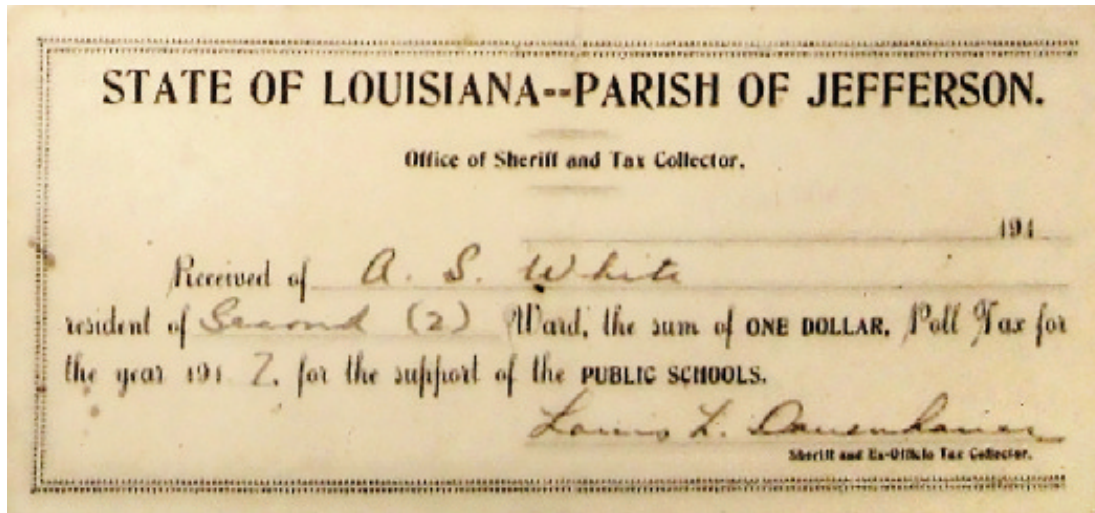 STATE OF LOUISIANA--PARISH OF JEFFERSON.
Office of Sheriff and Tax Collector.
191
Received of A. S. White
resident of Second (2) Ward, the sum of ONE DOLLAR, Poll Tax for
the year 191 7, for the support of the PUBLIC SCHOOLS.
Louis L. Dauenhauer
Sheriff and Ex-Officio Tax Collector.